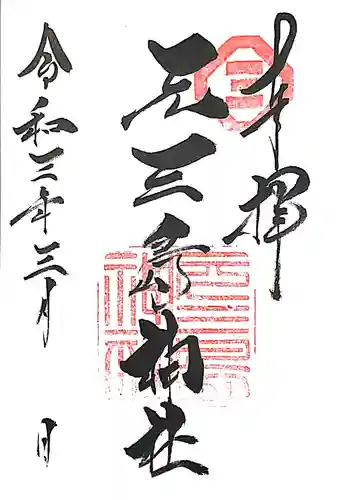 奉拝
三
元三島神社
令和三年三月 日